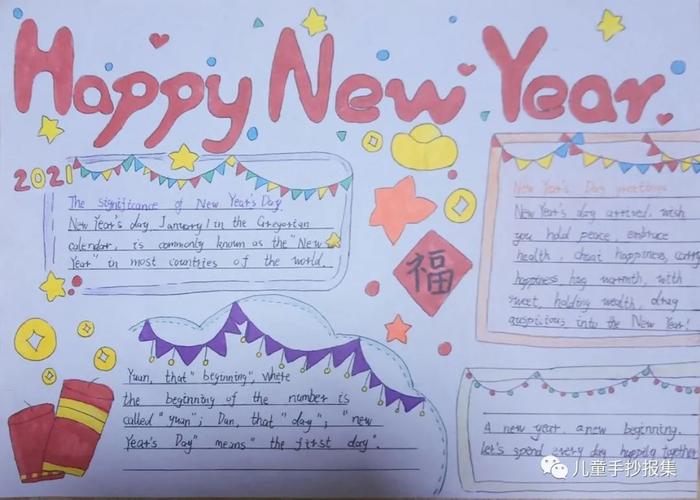 Happy New Year.
2021
The significance of New Year's Day.
New Year's day, January 1 in the Gregorian
calendar, is commonly known as the "New
Year" in most countries of the world.
福
New Year's Day greetings
New Year's day arrived, wish
you hold peace, embrace
health, cheat happiness, carry
happiness, hag warmth, with
sweet, holding wealth, drag
auspicious into the New Year!
Yuan, that "beginning", where
the beginning of the number is
called "yuan"; Dan, that "day"; "new
Year's Day" means "the first day".
A new year, a new beginning.
let's spend every day happily together
儿童手抄报集